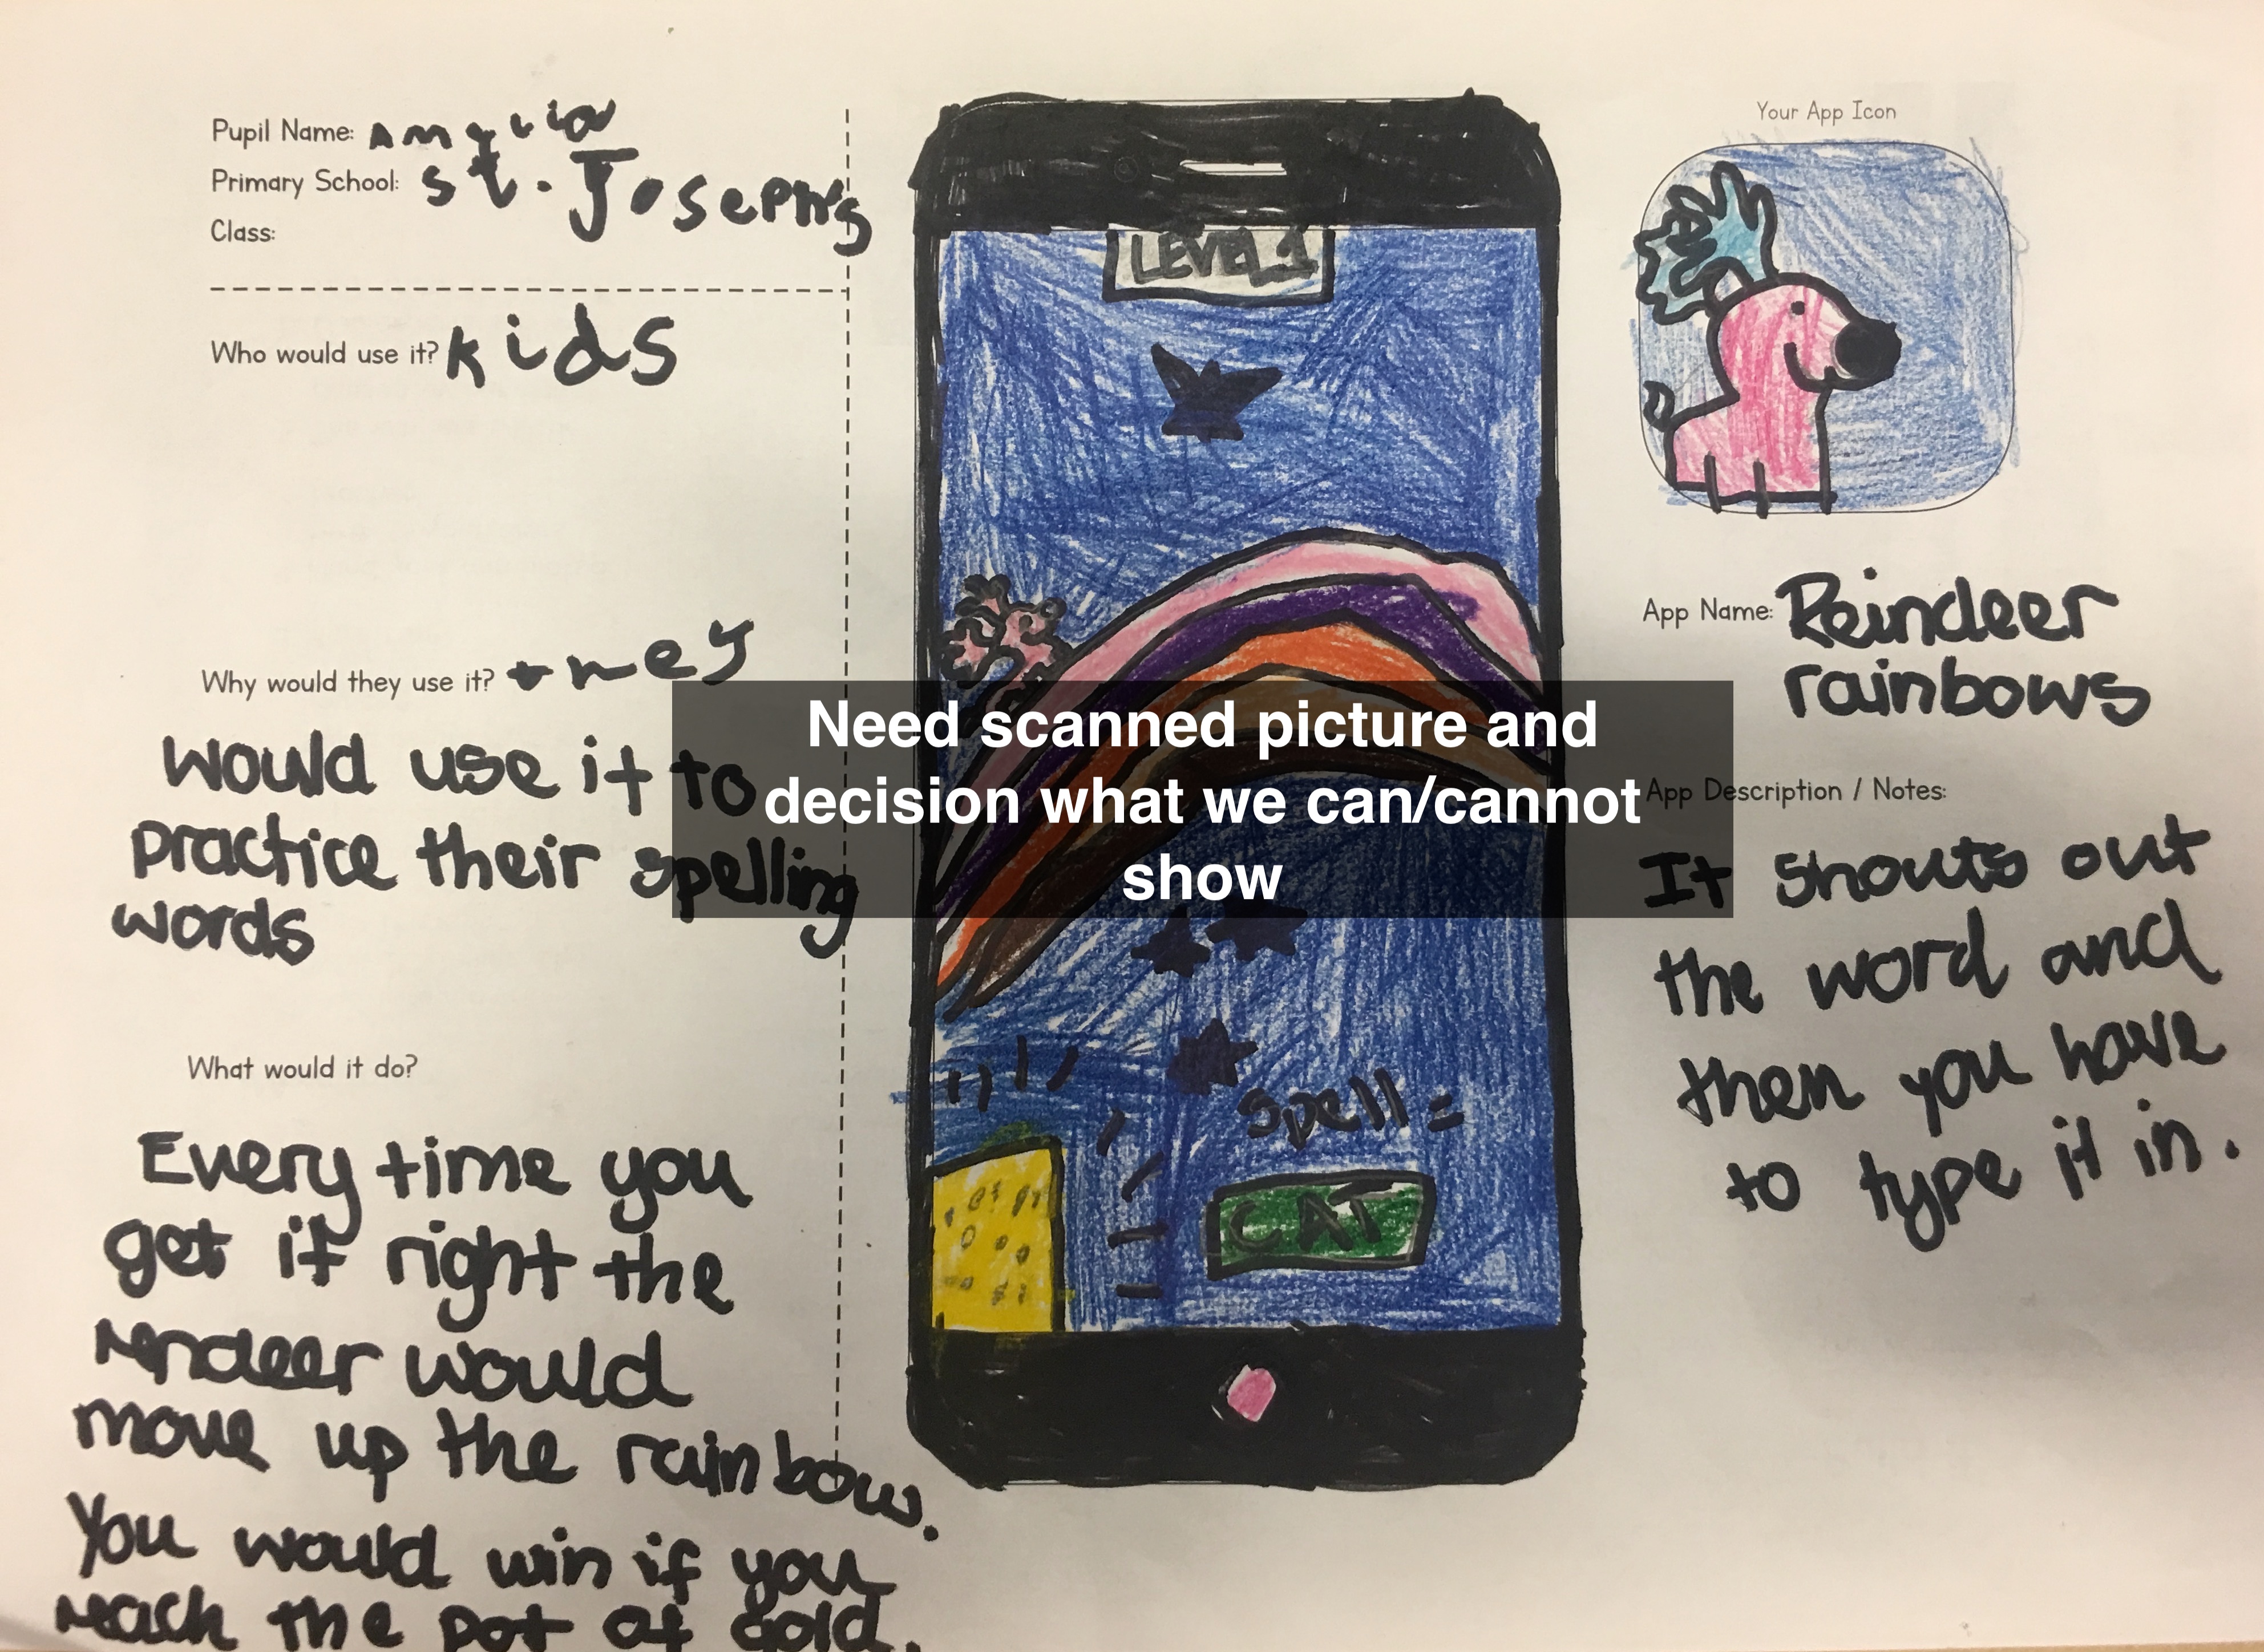 Pupil Name:
Primary School: St. Josephs
Class:
Who would use it? kids
Why would they use it? they
would use it to
practice their spelling
words
What would it do?
Every time you
get it right the
reindeer would
move up the rainbow.
You would win if you
reach the pot of gold.
LEVEL 1
Need scanned picture and
decision what we can/cannot
show
Spell =
CAT
Your App Icon
App Name: Reindeer
rainbows
App Description / Notes:
It shouts out
the word and
then you have
to type it in.